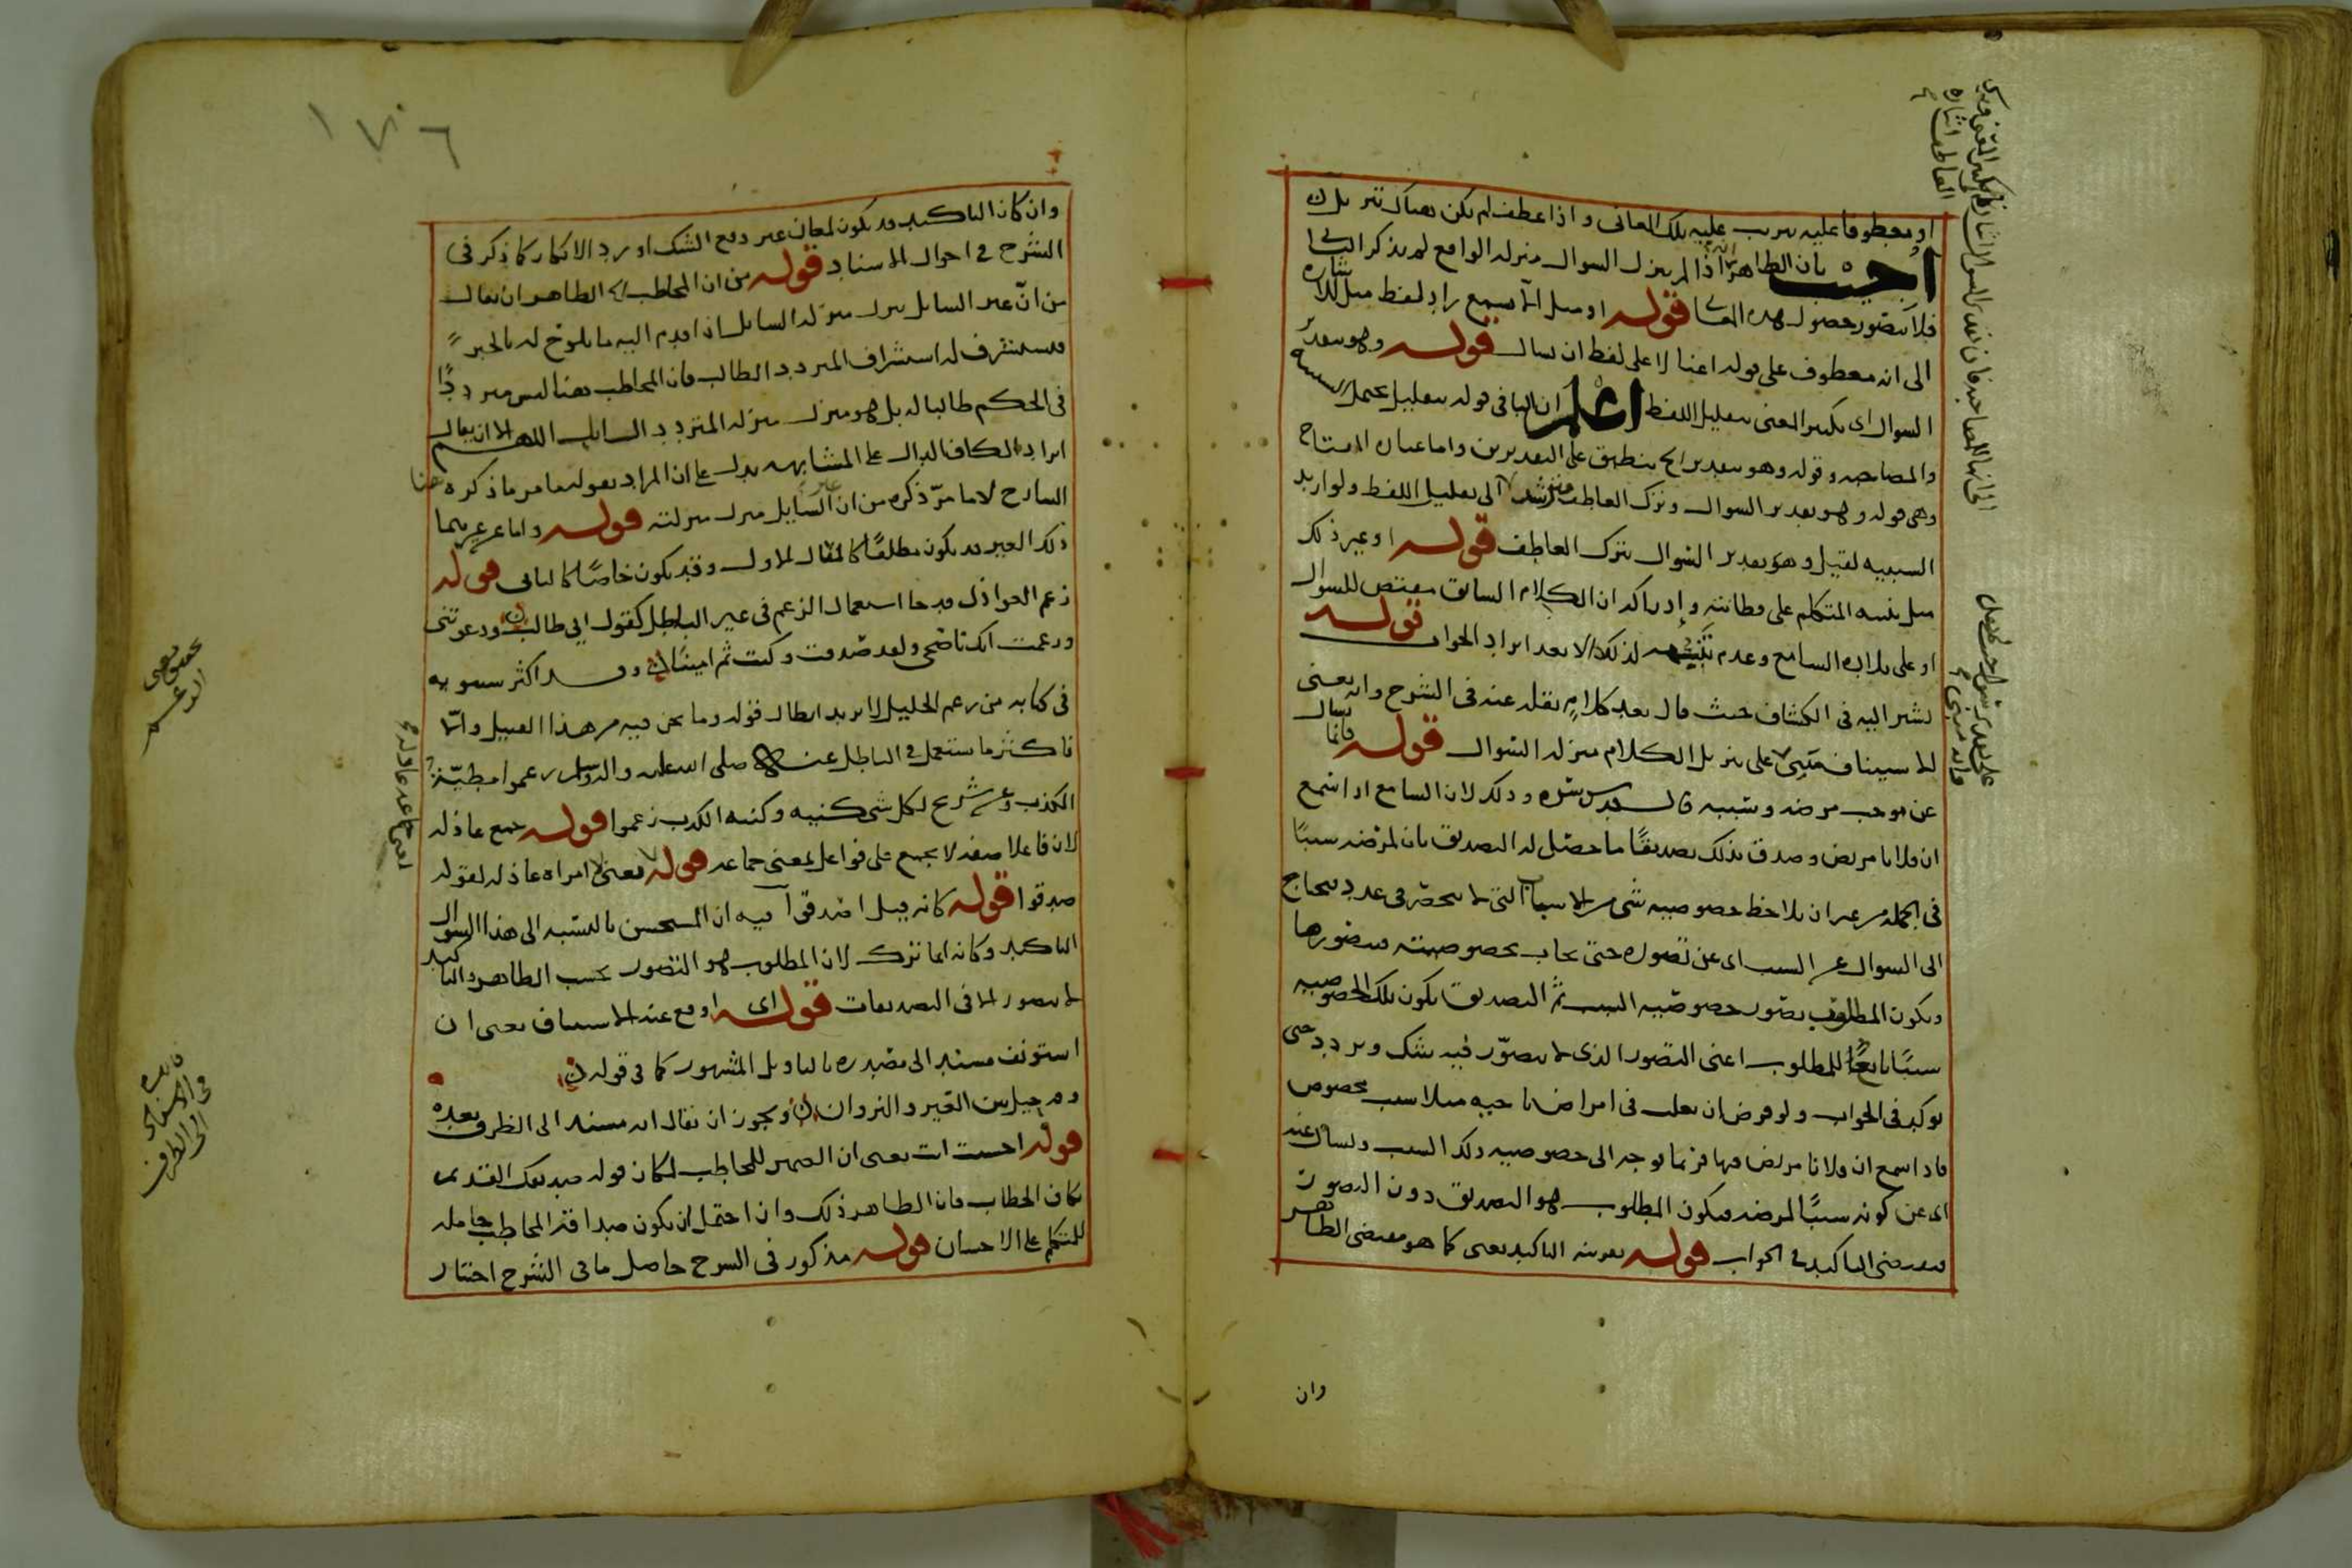 او معطوفا عليه يترتب عليه تلك المعانى و اذا عطف لم يكن هناك تنزيل
أجيب بان الظاهر انه اذا لم ينزل السوال منزلة الواقع لم يذكر الثانى
فلا يتصور حصول هذه المعانى قوله او مثل الا يسمع زاد لفظ مثل للاشارة
الى انه معطوف على قوله اغنا لا على لفظ ان يسال قوله وهو تقدير
السوال اى تكثير المعنى بتقليل اللفظ اعلم ان البا فى قوله بتقليل يحتمل السببية
والمصاحبة وقوله وهو تقدير الخ ينطبق على التقديرين واما عبارة المفتاح
وهى قوله وهو تقدير السوال وترك العاطف الى تقليل اللفظ ولو اريد
السببية لقيل وهو تقدير السوال بترك العاطف قوله او غير ذلك
مثل تنبيه المتكلم على فطانته وادراكه ان الكلام السابق مقتض للسوال
او على بلادة السامع وعدم تنبهه لذلك الا بعد ايراد الجواب قوله
نشير اليه فى الكشاف حيث قال بعد كلام نقله عنه فى الشرح وانه يعنى
الاستيناف مبنى على تنزيل الكلام منزلة السوال قوله فانما يسال
عن موجب مرضه وسببه قال قدس سره وذلك لان السامع اذا سمع
ان فلانا مريض وصدق بذلك تصديقا ما حصل له التصديق بان لمرضه سببا
فى الجملة من غير ان يلاحظ خصوصية شى من الاسباب التى لا تنحصر فى عدد فيحتاج
الى السوال عن السبب اى عن تصوره حتى يجاب بخصوصيته فيتصورها
ويكون المطلوب تصور خصوصية السبب ثم التصديق بكون تلك الخصوصية
سببا تابعا للمطلوب اعنى التصور الذى لا يتصور فيه شك وتردد حتى
يوكد فى الجواب ولو فرض ان يغلب فى امراض ناحية مثلا سبب مخصوص
فاذا سمع ان فلانا مريض فيها فربما توجه الى خصوصية ذلك السبب ويسال عنه
اى عن كونه سببا لمرضه فيكون المطلوب هو التصديق دون التصور
فيقتضى التاكيد فى الجواب قوله بقرينة التاكيد يعنى كما هو مقتضى الظاهر
وان
١٧٠٦
وان كان التاكيد قد يكون لمعان غير دفع الشك او رد الانكار كما ذكر فى
الشرح فى احوال الاسناد قوله من ان المخاطب الظاهر ان يقال
من ان غير السايل ينزل منزلة السايل اذا قدم اليه ما يلوح له بالخبر
فيستشرف له استشراف المتردد الطالب فان المخاطب هنا ليس مترددا
فى الحكم طالبا له بل هو منزل منزلة المتردد السايل اللهم الا ان يقال
ايراد الكاف الدال على المشابهة يدل على ان المراد بقوله مما مر ما ذكره هنا
الشارح لا ما مر ذكره من ان غير السايل ينزل منزلته قوله واما عن غيرهما
ذلك الغير قد يكون مطلقا كالمثال الاول وقد يكون خاصا كالثانى قوله
زعم العواذل قد جا استعمال الزعم فى غير الباطل كقول ابى طالب ودعوتنى
وزعمت انك ناصحى ولقد صدقت وكنت ثم امينا وقد اكثر سيبويه
فى كتابه من زعم الخليل لا يريد ابطال قوله وما نحن فيه من هذا القبيل واما
فاكثر ما يستعمل فى الباطل عنه صلى الله عليه واله وسلم زعموا مطية
الكذب وعن شريح لكل شى كنية وكنية الكذب زعموا قوله جمع عاذلة
لان فاعلا صفة لا يجمع على فواعل بمعنى جماعة قوله لا بمعنى امراة عاذلة لقوله
صدقوا قوله كانه قيل اصدقوا فيه ان المستحسن بالنسبة الى هذا السوال
التاكيد وكانه انما ترك لان المطلوب هو التصور بحسب الظاهر والتاكيد
لا يتصور الا فى التصديقات قوله اى اوقع عنه الاستيناف يعنى ان
استونف مسند الى مصدره بالتاويل المشهور كما فى قوله
وقد حيل بين العير والنزوان ويجوز ان يقال انه مسند الى الظرف بعده
قوله احسنت انت يعنى ان الضمير للمخاطب لمكان قوله صديقك القديم
بكاف الخطاب فان الظاهر ذلك وان احتمل ان يكون صداقة المخاطب حاملة
للمتكلم على الاحسان قوله مذكور فى الشرح حاصل ما فى الشرح اختار
تحقيق معنى
الزعم
لمعنى جماعة عاذلة
فى الاسناد
الى الظرف